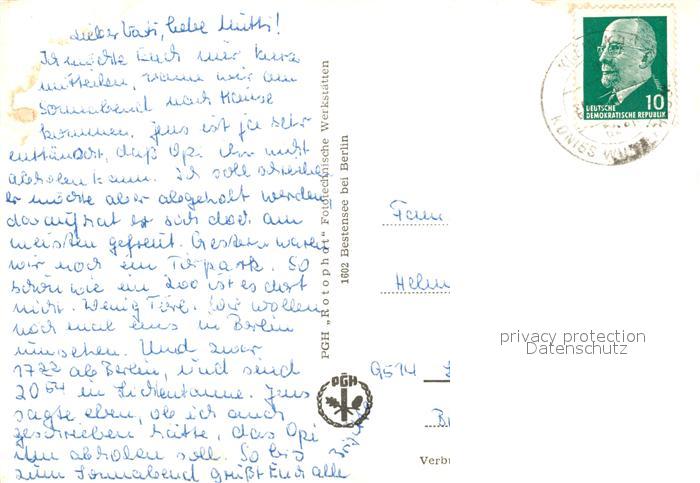 Lieber Vati, liebe Mutti!
Ich möchte Euch nur kurz
mitteilen, wann wir am
Sonnabend nach Hause
kommen. Jens ist ja sehr
enttäuscht, daß Opi ihn nicht
abholen kann. Ich soll schreiben
er möchte aber abgeholt werden,
darauf hat er sich doch am
meisten gefreut. Gestern waren
wir noch im Tierpark. So
schön wie im Zoo ist es dort
nicht. Wenig Tiere. Wir wollen
noch mal uns in Berlin
umsehen. Und zwar
17 22 ab Berlin, und sind
20 54 in Lichtentanne. Jens
sagte eben, ob ich auch
geschrieben hätte, das Opi
ihn abholen soll. So bis
zum Sonnabend grüßt Euch alle
PGH „Rotophot" Fototechnische Werkstätten
1602 Bestensee bei Berlin
PGH
DEUTSCHE
DEMOKRATISCHE REPUBLIK
10
KÖNIGS WUST
Fam.
Helm
9514
Verb
privacy protection
Datenschutz